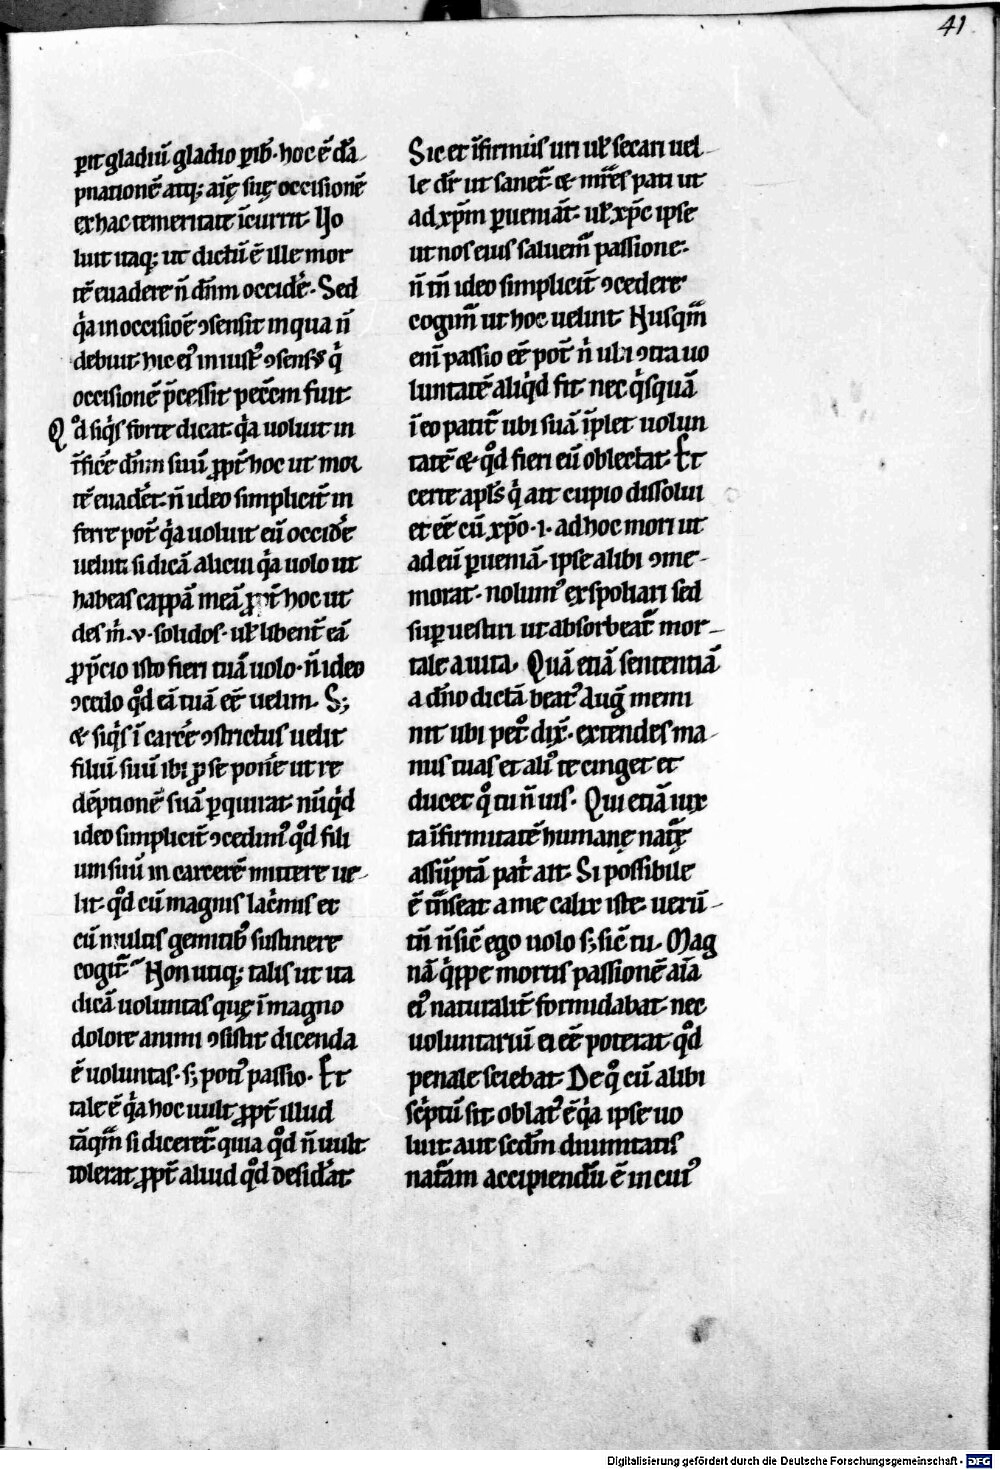 41
ꝑit gladiũ gladio ꝑib᷑. hoc ẽ dã-
pnationẽ atq; aĩę suę occisionẽ
ex hac temeritate ĩcurrit. No
luit itaq; ut dictũ ẽ ille mor
tẽ euadere ñ dñm occid̾e. Sed
q̇a in occisiõe ꝯsensit in qua ñ
debuit. hic ei᷒ iniust᷒ ꝯsensꝰ q̇
occisionẽ p̃cessit pecc̃m fuit.
Qd̾ siq̇s forte dicat. q̇a uoluit in
t̃fic̾e dñm suũ ꝓpt̾ hoc ut mor
tẽ euad̾et. ñ ideo simplicit̃ in
ferre pot̃ q̇a uoluit eũ occid̾e
uelut si dicã alicui q̇a uolo ut
habeas cappã meã ꝓpt̃ hoc ut
des m̊. v. solidos. ul̃ libent̃ eã
ꝓ p̃cio isto fieri tuã uolo. ñ ideo
ꝯcedo qd̾ eã tuã eẽ uelim. S;
& siq̇s ĩ carc̾e ꝯstrictus uelit
filiũ suũ ibi ꝓ se pon̾e ut re
dẽptionẽ suã ꝑquirat. nũq̇d
ideo simplicit̃ ꝯcedim᷒ qd̾ fili
um suũ in carcerẽ mittere ue-
lit. qd̾ cũ magnis lac̊mis et
cũ multis gemitib᷒ sustinere
cogit᷑. Non utiq; talis ut ita
dicã uoluntas quę ĩ magno
dolore animi ꝯsistit dicenda
ẽ uoluntas. s; poti᷒ passio. Et
tale ẽ q̇a hoc uult ꝓpt̃ illud
tãqm̃ si diceret᷑ quia qd̾ ñ uult
tolerat ꝓpt̃ aliud qd̾ desid̾at.
Sic et ĩfirmus uri ul̃ secari uel-
le dr̃ ut sanet᷑. & mr̃es pati ut
ad xp̃m ꝑueniãt. ul̃ xp̃c ipse
ut nos eius saluem᷑ passione.
ñ tñ ideo simplicit̃ ꝯcedere
cogim᷑ ut hoc uelint. Nusqm̃
eni᷑ passio eẽ pot̃ n̊ ubi ꝯtra uo
luntatẽ aliq̇d fit. nec q̇squã
ĩ eo patit᷑ ubi suã ĩplet uolun
tatẽ. & qd̾ fieri eũ oblectat. Et
certe apl̃s q̇ ait cupio dissolui
et eẽ cũ xp̃o .i. ad hoc mori ut
ad eũ ꝑueniã. ipse alibi ꝯme-
morat. nolum᷒ exspoliari sed
suꝑuestiri ut absorbeat᷑ mor-
tale a uita. Quã etiã sententiã
a dño dictã beat᷒ Aug̃ memi
nit ubi pet̊ dix̃. extendes ma-
nus tuas et ali᷒ te cinget et
ducet q̊ tu ñ uis. Qui etiã iux
ta ĩfirmitatẽ humanę nat᷑ę
assũptã pat̊ ait. Si possibile
ẽ t᷑nseat a me calix iste. uerũ-
tñ ñ sic̃ ego uolo s; sic̃ tu. Mag
nã q̇ppe mortis passionẽ aĩa
ei᷒ naturalit̃ formidabat. nec
uoluntariũ ei eẽ poterat qd̾
penale sciebat. De q̊ cũ alibi
sc̊ptũ sit oblat᷒ ẽ q̇a ipse uo
luit. aut sed̃m diuinitatis
nat᷑am accipiendũ ẽ in cui᷒
Digitalisierung gefördert durch die Deutsche Forschungsgemeinschaft - DFG